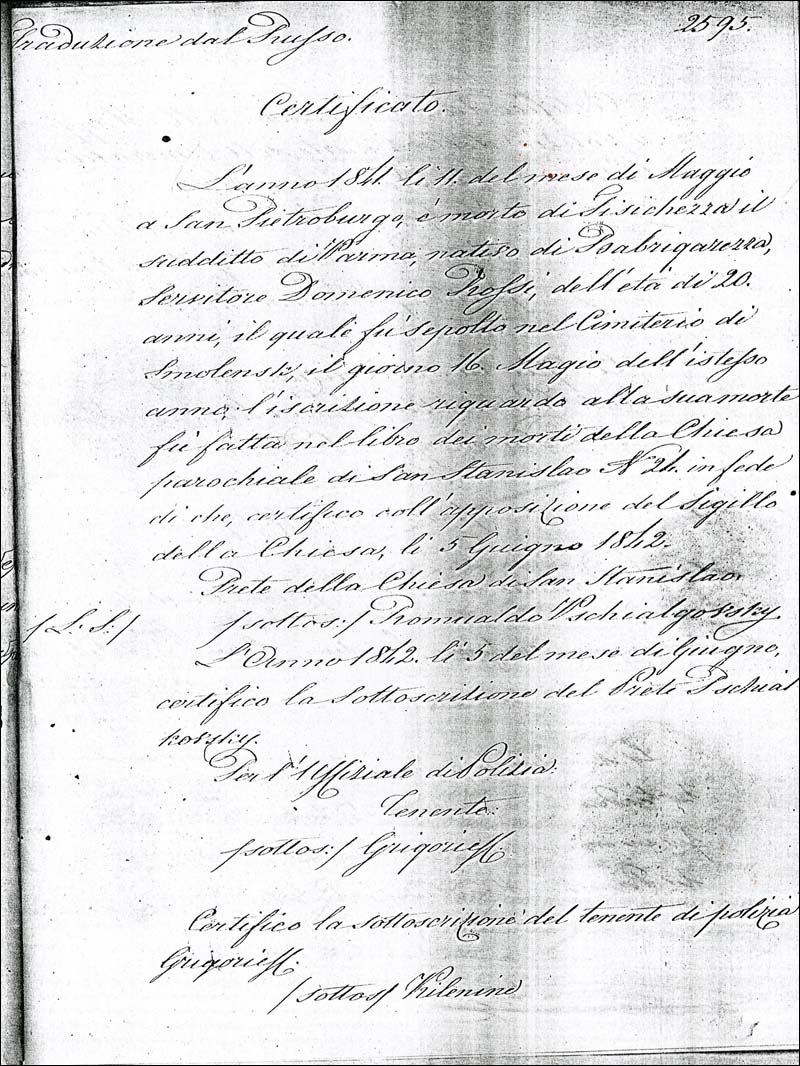 Traduzione dal Russo.
2595.
Certificato.
L'anno 1841. li 11. del mese di Maggio
a San Pietroburgo, é morto di Tisichezza il
suddito di Parma, nativo di Babrigarezza,
Servitore Domenico Rossi, dell'etá di 20.
anni, il quale fú sepolto nel Cimiterio di
Smolensk, il giorno 16. Magio dell'istesso
anno; l'iscrizione riguardo alla sua morte
fú fatta nel libro dei morti della Chiesa
parochiale di San Stanislao N 24. in fede
di che, certifico coll'apposizione del Sigillo
della Chiesa, li 5 Guigno 1842.
Prete della Chiesa di San Stanislao.
/L: S:/ /sottos:/ Romualdo Pschialgovsky
L'Anno 1842. li 5 del mese di Giugno,
certifico la Sottoscrizione del Prete Pschial
kovsky.
Per l'Uffiziale di Polizia:
Tenente:
/sottos:/ Grigorieff.
Certifico la sottoscrizione del tenente di polizia
Grigorieff.
/sottos/ Kilenine